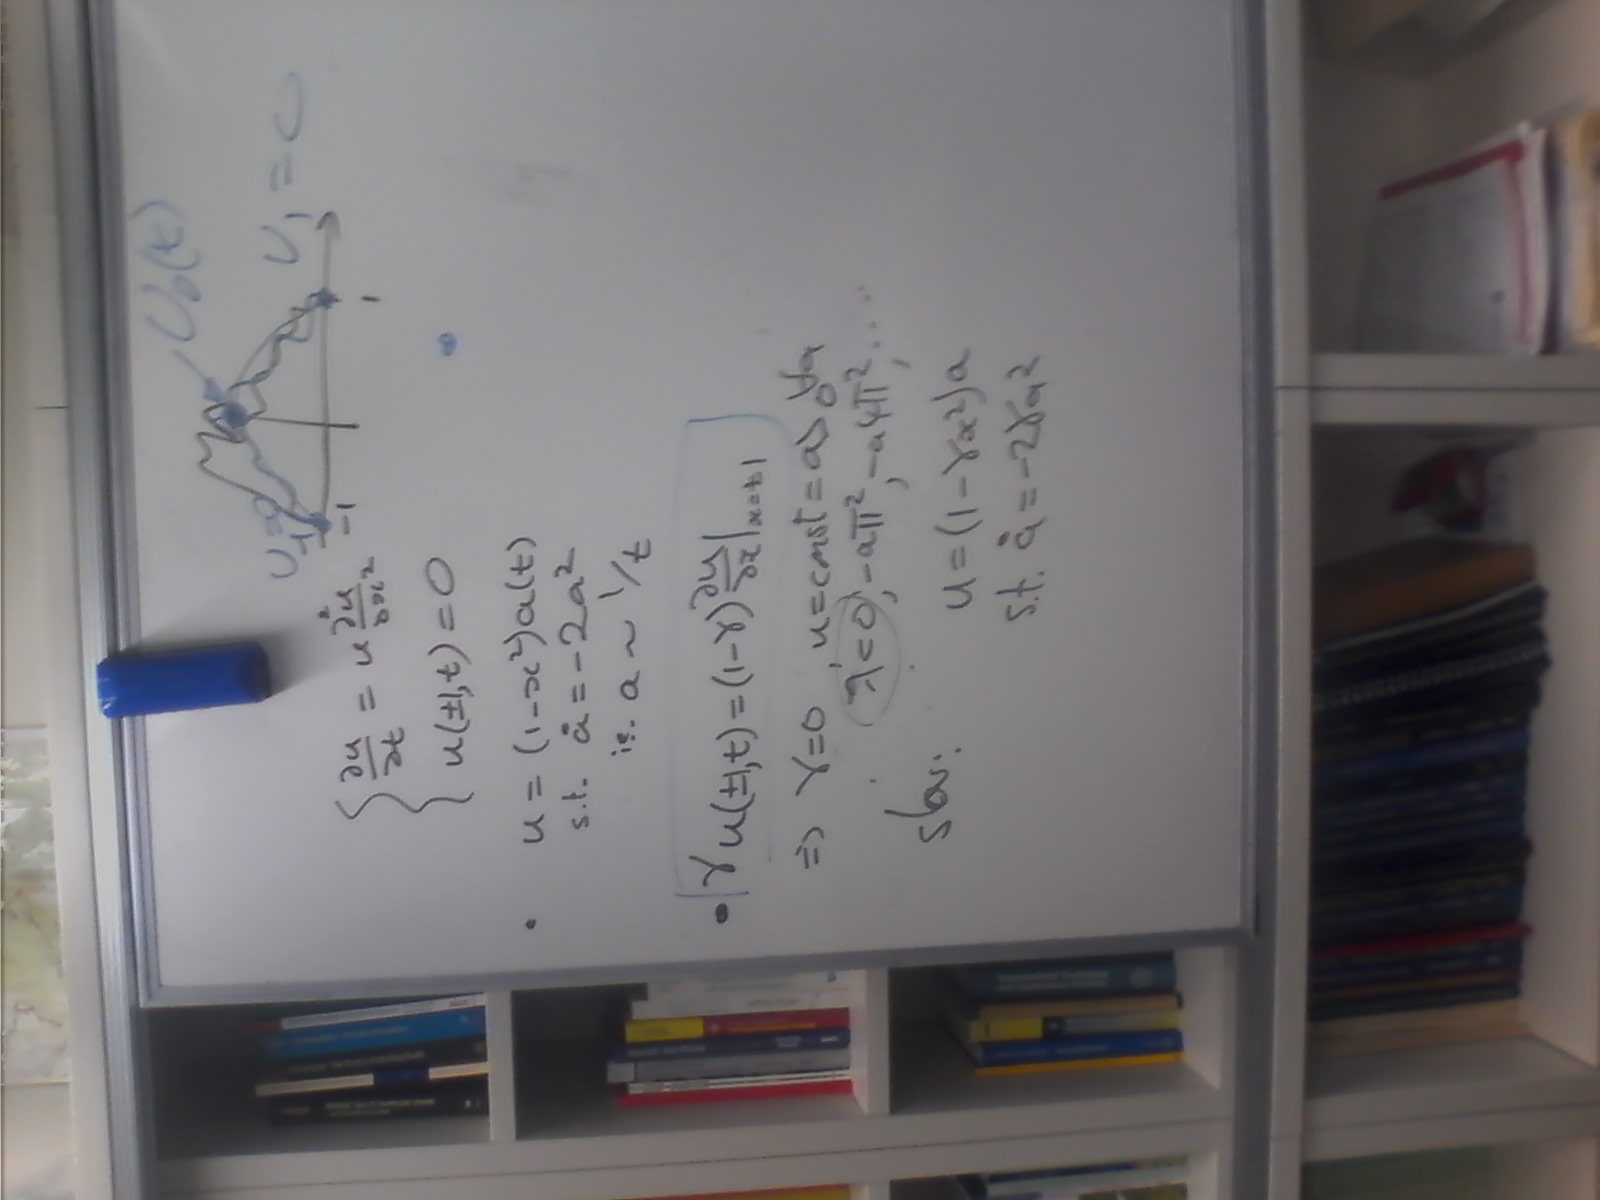 U₀(t)
U₋₁=0
U₁ = 0
-1
1
∂u/∂t = u ∂²u/∂x²
u(±1,t) = 0
• u = (1-x²)a(t)
s.t. ȧ = -2a²
ie. a ~ 1/t
• γu(±1,t) = (1-γ)∂u/∂x|x=±1
⇒ γ=0, u=const=a>0 ∀a
λ=0, -aπ², -a4π², ....
u=(1-γx²)a
s.t. ȧ = -2γa²